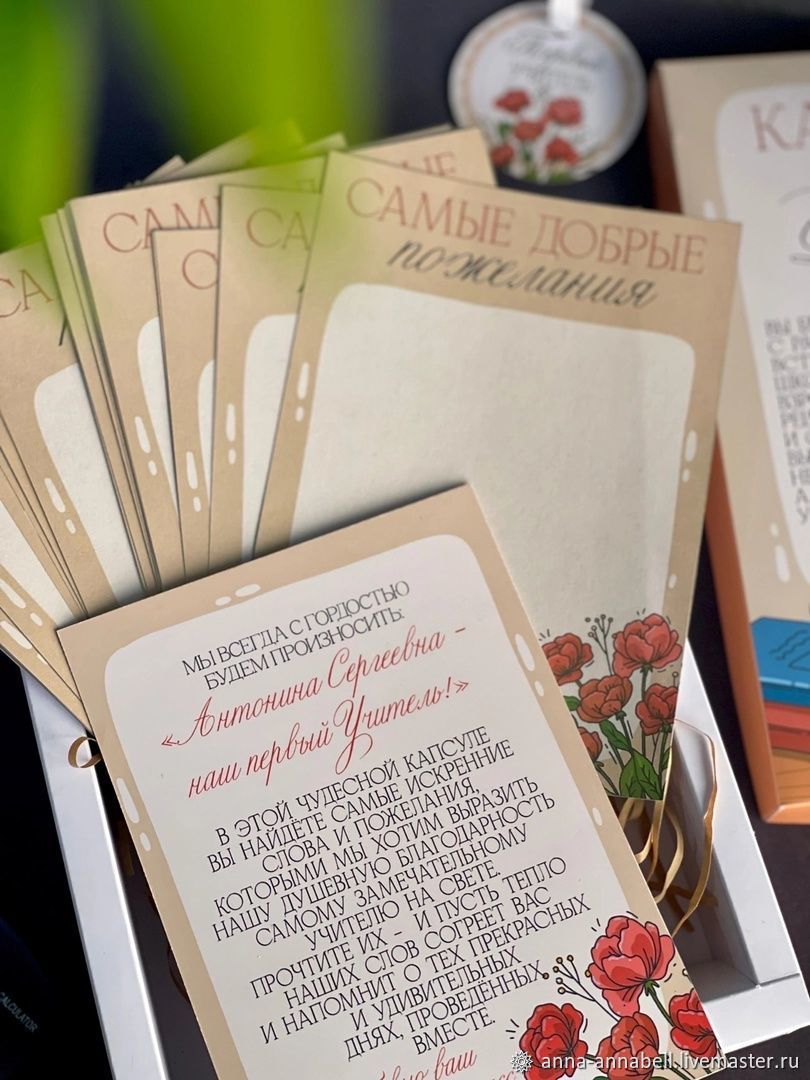 САМЫЕ ДОБРЫЕ
пожелания
САМЫЕ
САМ
СА
СА
С
КА
МЫ ВСЕГДА С ГОРДОСТЬЮ
БУДЕМ ПРОИЗНОСИТЬ:
«Антонина Сергеевна -
наш первый Учитель!»
В ЭТОЙ ЧУДЕСНОЙ КАПСУЛЕ
ВЫ НАЙДЁТЕ САМЫЕ ИСКРЕННИЕ
СЛОВА И ПОЖЕЛАНИЯ,
КОТОРЫМИ МЫ ХОТИМ ВЫРАЗИТЬ
НАШУ ДУШЕВНУЮ БЛАГОДАРНОСТЬ
САМОМУ ЗАМЕЧАТЕЛЬНОМУ
УЧИТЕЛЮ НА СВЕТЕ.
ПРОЧТИТЕ ИХ - И ПУСТЬ ТЕПЛО
НАШИХ СЛОВ СОГРЕЕТ ВАС
И НАПОМНИТ О ТЕХ ПРЕКРАСНЫХ
И УДИВИТЕЛЬНЫХ
ДНЯХ, ПРОВЕДЁННЫХ
ВМЕСТЕ.
ваш
CALCULATOR
anna-annabell.livemaster.ru